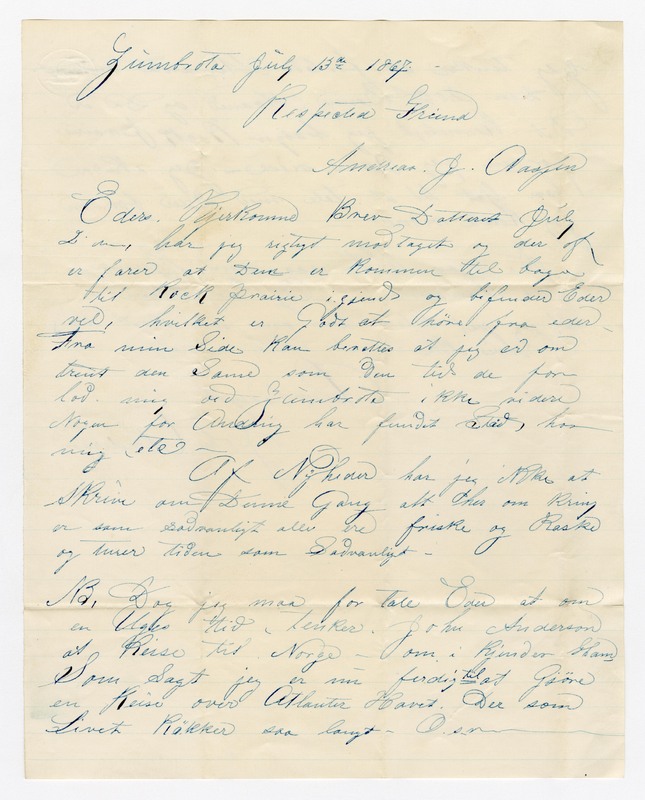 Zumbrota July 13de 1867.
Respected Friend
Andreas. J. Aaosen
Eders. Kjerkomne Brev Datteret July
2 den, har jeg rigtigt modtaget og der af
er farer at Dem er kommen tel bage
til Rock Prairie igjend og befinder Eder
vel, hvilket er Godt at höre fra eder
Fra min Side kan berettes at jeg er om
trent den Same som den tid de for
lod mig ved Zumbrota ikke videre
Nogen for Andring har fundet Stid, hos
mig etc -
Af Nyheder har jeg Ikke at
Skrive om Denne Gang alt her om kring
er som sædvanligt alle ere friske og Raske
og turer tiden som Sædvanligt -
NB, Dog jeg maa for tale Eder at om
en Uges ttid, tenker John Anderson
at Reise til Norge - om i kjender Ham
Som Sagt jeg er nu ferdig til at Gjöre
en Reise over Atlanter Havet. Der som
Livet Räkker saa langt - O.s.v.